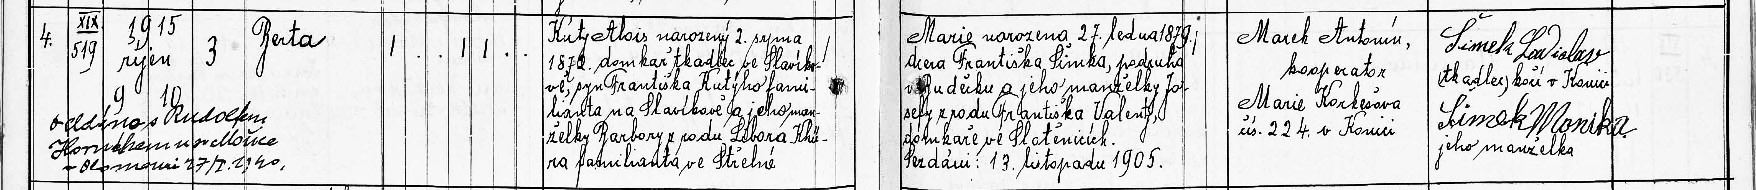 4.
XIX
519
1915
říjen
9 10
3
Berta
1 . . 1 1 . .
oddána s Rudolfem
v Olomouci 27/7. 1940.
Kutý Alois narozený 2. srpna
1872. domkář tkadlec ve Slavíko-
vě, syn Františka Kutýho fami-
lianta na Slavíkově a jeho man-
želky Barbory z rodu Libora Khü-
ra familianta ve Střelné
Marie narozena 27. ledna 1879,
dcera Františka Šínka, podruha
v Rudečku a jeho manželky Jo-
sefy z rodu Františka Valenty,
domkaře ve Slatěnicích.
Sezdáni: 13. listopadu 1905.
Marek Antonín,
kooperator
Marie Korhešova
čís. 224. v Konici
Šimek Ladislav
(tkadlec) kočí v Konici
Šimek Monika
jeho manželka